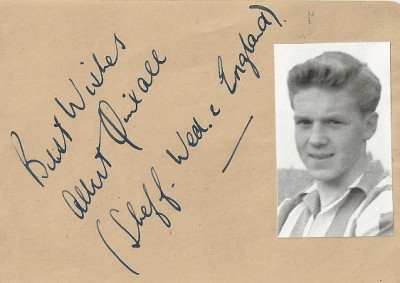 Best Wishes
Albert Quixall
(Sheff. Wed. & England).